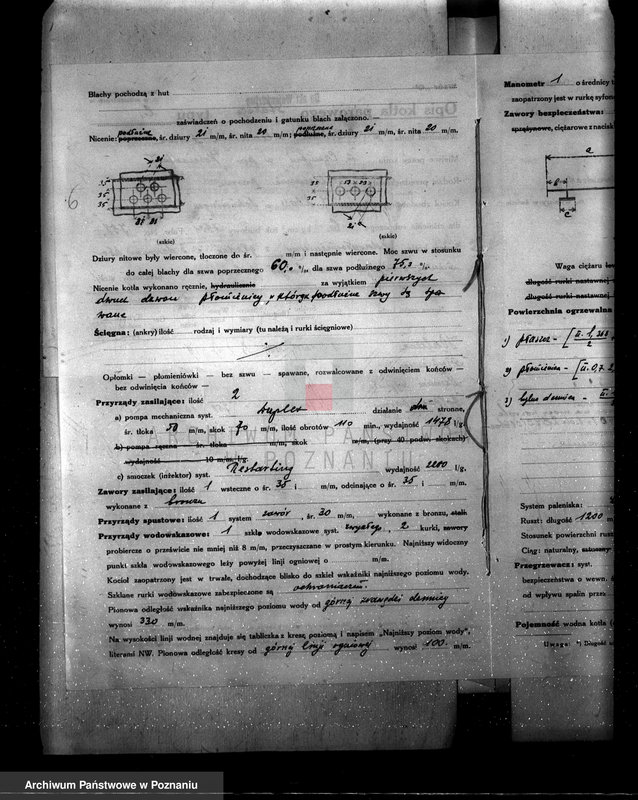 Blachy pochodzą z hut
zaświadczeń o pochodzeniu i gatunku blach załączono. —
Nicenie: podłużne poprzeczne, śr. dziury 21 m/m, śr. nita 20 m/m; poprzeczne podłużne, śr. dziury 21 m/m, śr. nita 20 m/m.
21
35
35
35
21 21
(szkic)
35
35
53 53
21
(szkic)
6
Dziury nitowe były wiercone, tłoczone do śr. m/m i następnie wiercone. Moc szwu w stosunku
do całej blachy dla szwa poprzecznego 60,0 %, dla szwa podłużnego 75,3 %.
Nicenie kotła wykonano ręcznie, hydraulicznie za wyjątkiem pierwszych
dwuch płomienicy, podłużne szwy są spa
wane
Ścięgna: (ankry) ilość rodzaj i wymiary (tu należą i rurki ścięgniowe)
Opłomki — płomieniówki — bez szwu — spawane, rozwalcowane z odwinięciem końców —
bez odwinięcia końców —
Przyrządy zasilające: ilość 2
a) pompa mechaniczna syst. duplex działanie dwu stronne,
śr. tłoka 50 m/m, skok 70 m/m, ilość obrotów 110 min., wydajność 1478 l/g.
b) pompa ręczna śr. tłoka m/m, skok m/m, (przy 40 podw. skokach)
wydajność 10 m/m, l/g.
c) smoczek (inżektor) syst. Restarting wydajność 2200 l/g.
Zawory zasilające: ilość 1 wsteczne o śr. 35 i m/m, odcinające o śr. 35 i m/m,
wykonane z bronzu
Przyrządy spustowe: ilość 1 system zawór, śr. 30 m/m, wykonane z bronzu, stali
Przyrządy wodowskazowe: 1 szkło wodowskazowe syst. zwykły, 2 kurki, zawory
probiercze o prześwicie nie mniej niż 8 m/m, przeczyszczane w prostym kierunku. Najniższy widoczny
punkt szkła wodowskazowego leży powyżej linji ogniowej o m/m.
Kocioł zaopatrzony jest w trwałe, dochodzące blisko do szkieł wskaźniki najniższego poziomu wody.
Szklane rurki wodowskazowe zabezpieczone są ochraniaczem.
Pionowa odległość wskaźnika najniższego poziomu wody od górnej krawędzi dennicy
wynosi 330 m/m.
Na wysokości linji wodnej znajduje się tabliczka z kresą poziomą i napisem „Najniższy poziom wody",
literami NW. Pionowa odległość kresy od górnej linji ogniowej wynosi 100. m/m.
Manometr 1 o średnicy
zaopatrzony jest w rurkę syfono
Zawory bezpieczeństwa:
sprężynowe, ciężarowe z nacisk
a
b
c
Waga ciężaru
długość rurki nastawnej
długość rurki nastawnej
Powierzchnia ogrzewalna
1) płaszcz -
2) płomienica -
System paleniska:
Ruszt: długość 1200
Stosunek powierzchni rusz
Ciąg: naturalny, sztuczny
Przegrzewacz: syst.
bezpieczeństwa o wewn.
od wpływu spalin przez
Pojemność wodna kotła
Uwaga: *) Długość
ARCHIWUM PAŃSTWOWE
W POZNANIU
Archiwum Państwowe w Poznaniu